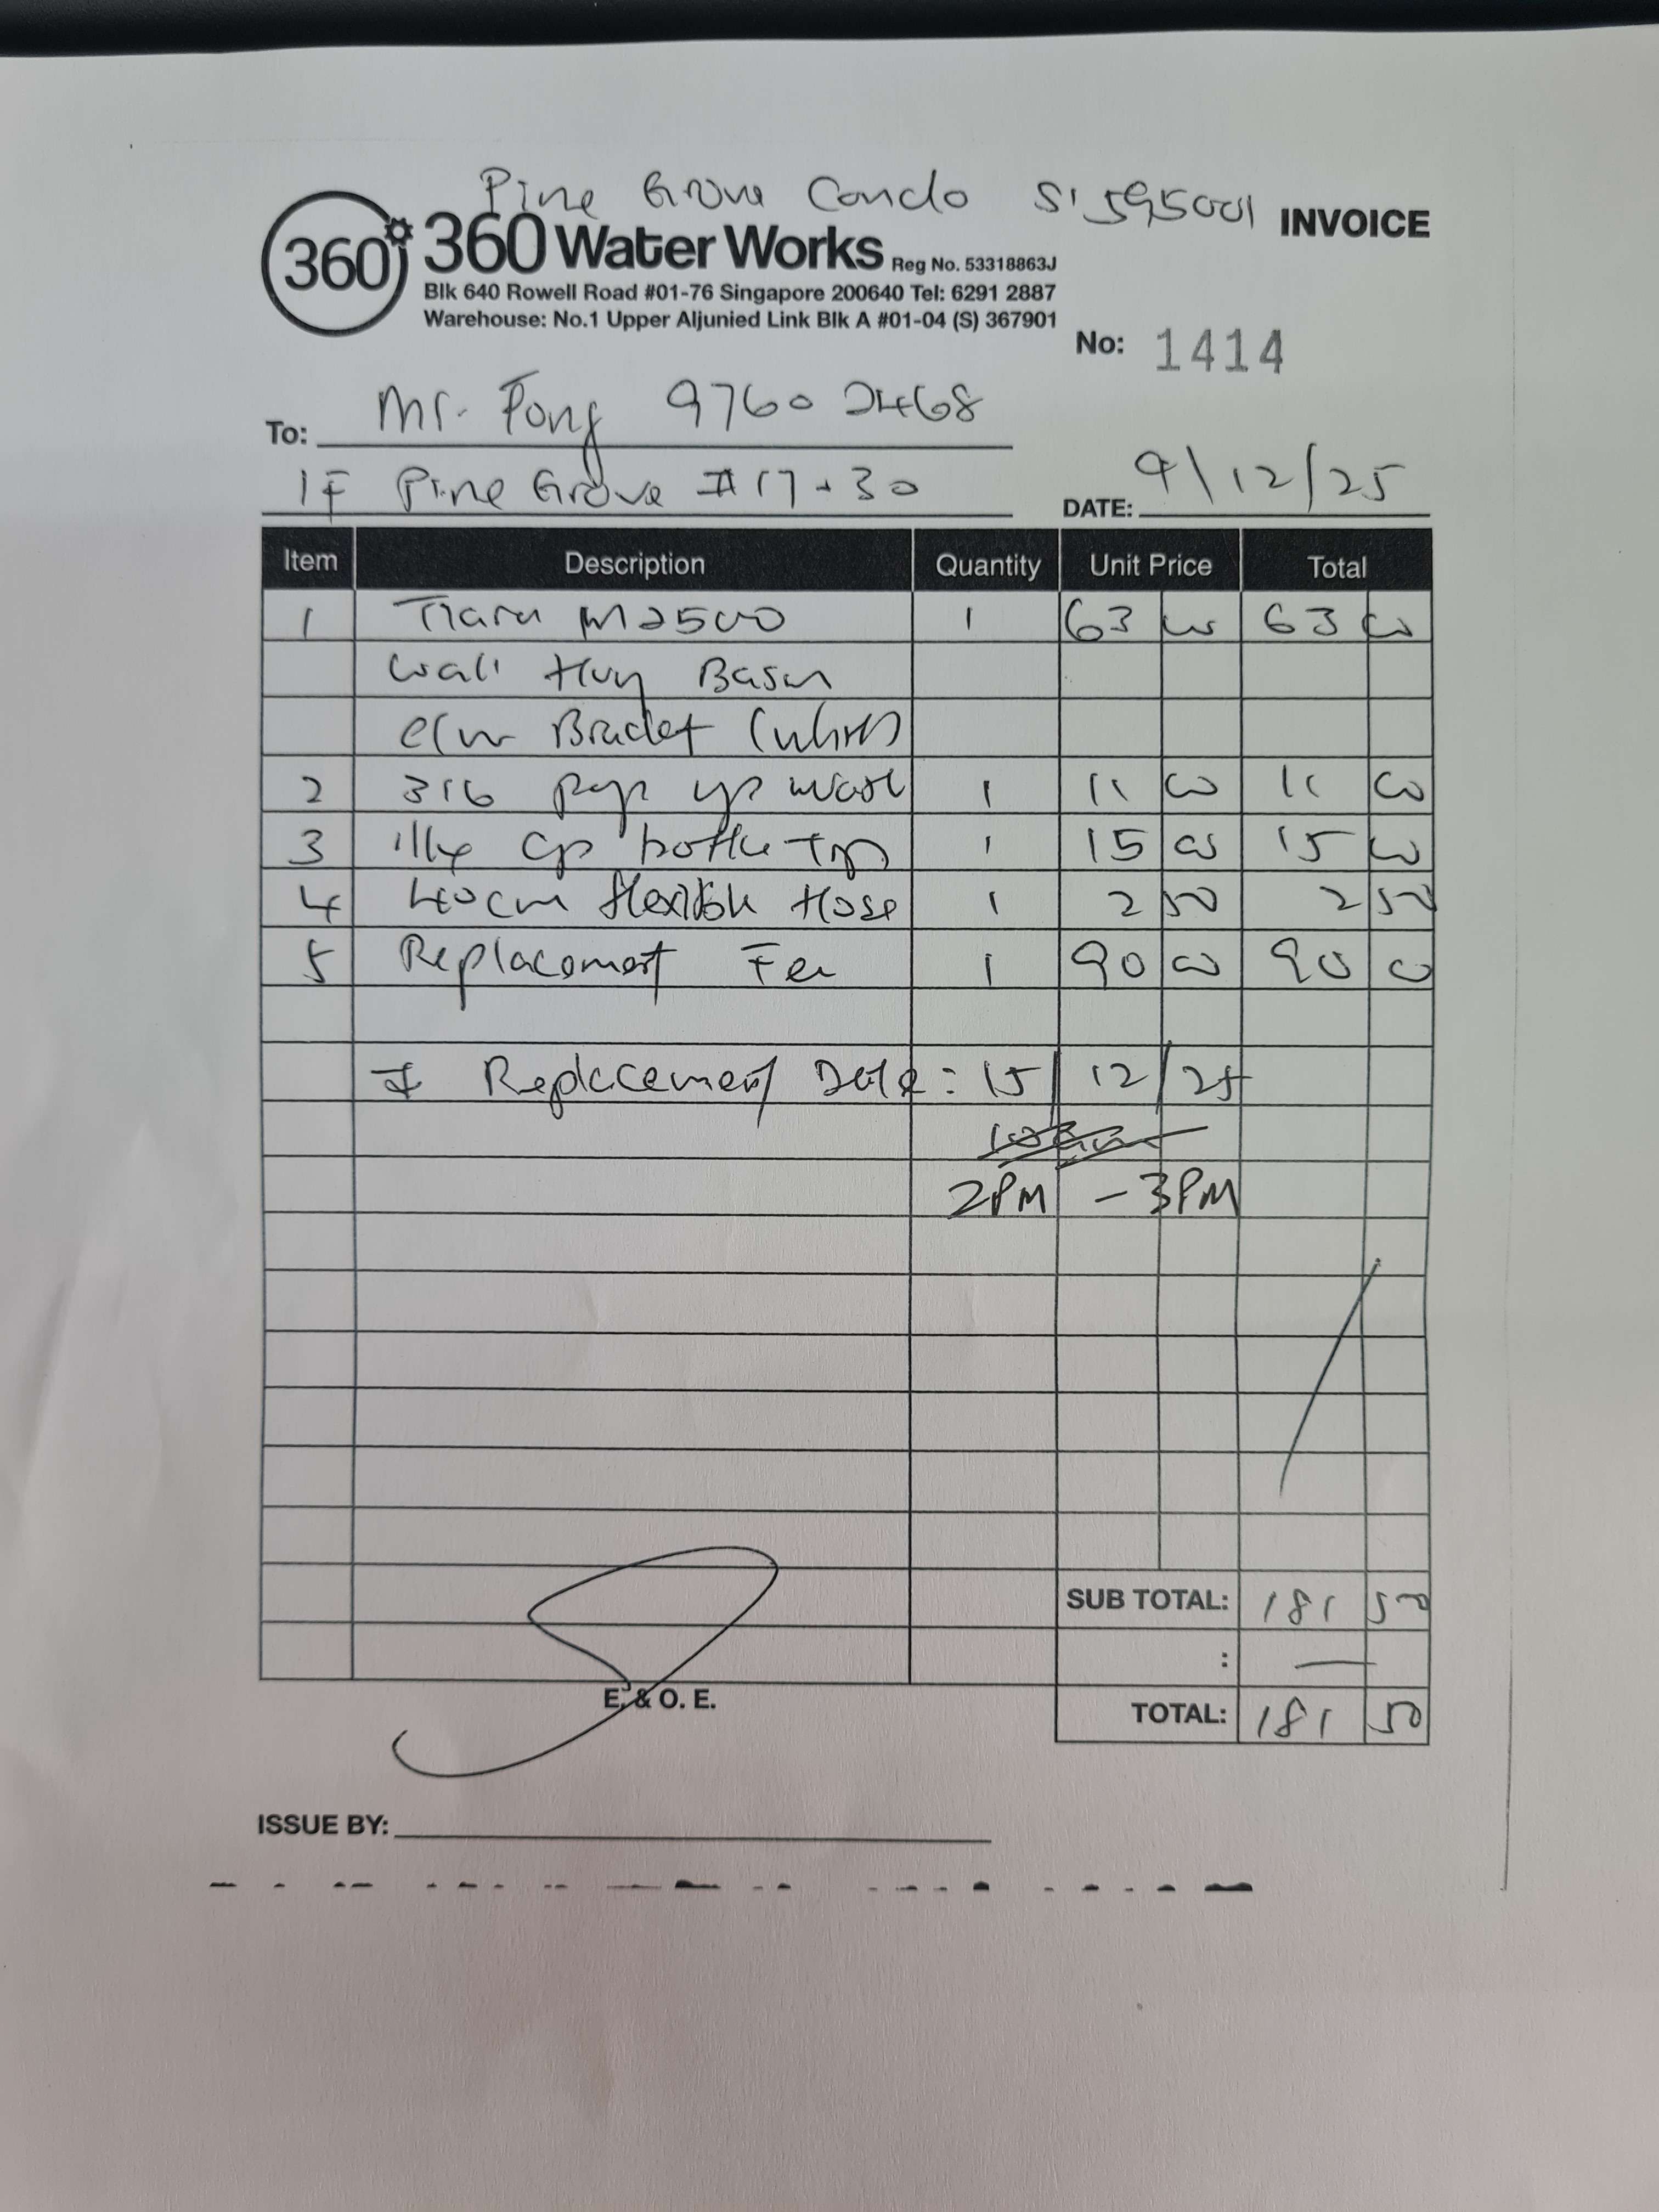 Pine Grove Condo S'595001
INVOICE
360° 360 Water Works Reg No. 53318863J
Blk 640 Rowell Road #01-76 Singapore 200640 Tel: 6291 2887
Warehouse: No.1 Upper Aljunied Link Blk A #01-04 (S) 367901
No: 1414
To: Mr. Fong 9760 2468
1F Pine Grove #17-30
DATE: 9/12/25
Item Description Quantity Unit Price Total
1 Tiara M2500 1 63 00 63 00
Wall Hung Basin
c/w Bracket (White)
2 316 pop up waste 1 11 00 11 00
3 cp bottle trap 1 15 00 15 00
4 40cm flexible Hose 1 2 50 2 50
5 Replacement Fee 1 90 00 90 00
* Replacement Date: 15/12/25
2PM - 3PM
SUB TOTAL: 181 50
: —
TOTAL: 181 50
E. & O. E.
ISSUE BY: